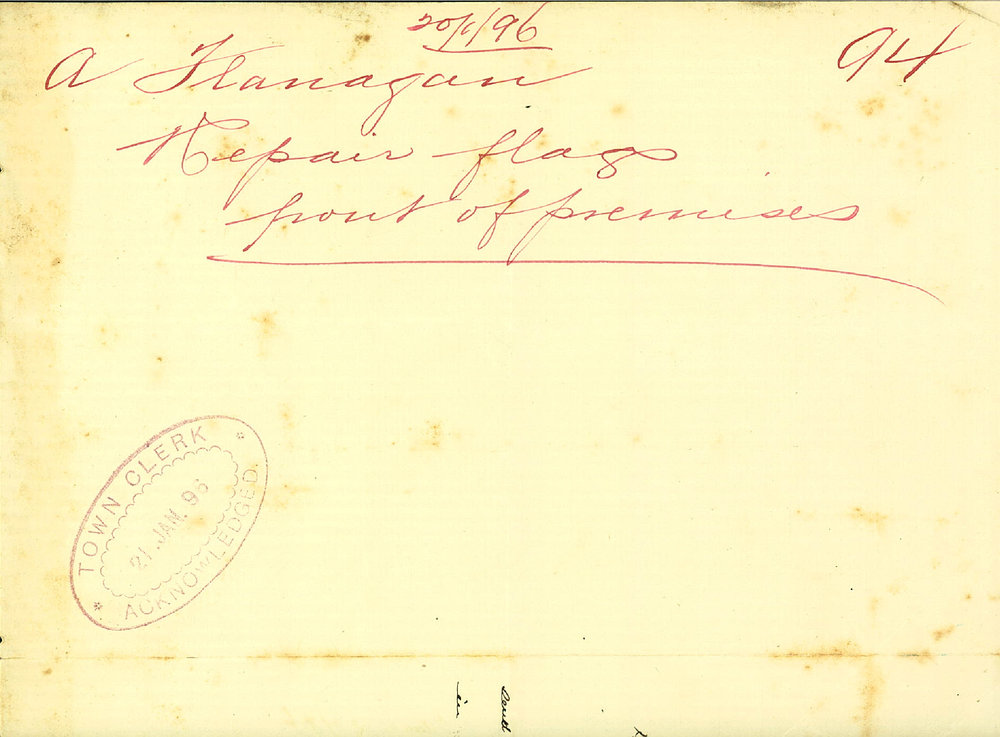 20/1/96
94
A Flanagan
Repair flags
front of premises
TOWN CLERK
21 JAN. 96
ACKNOWLEDGED.
and
in